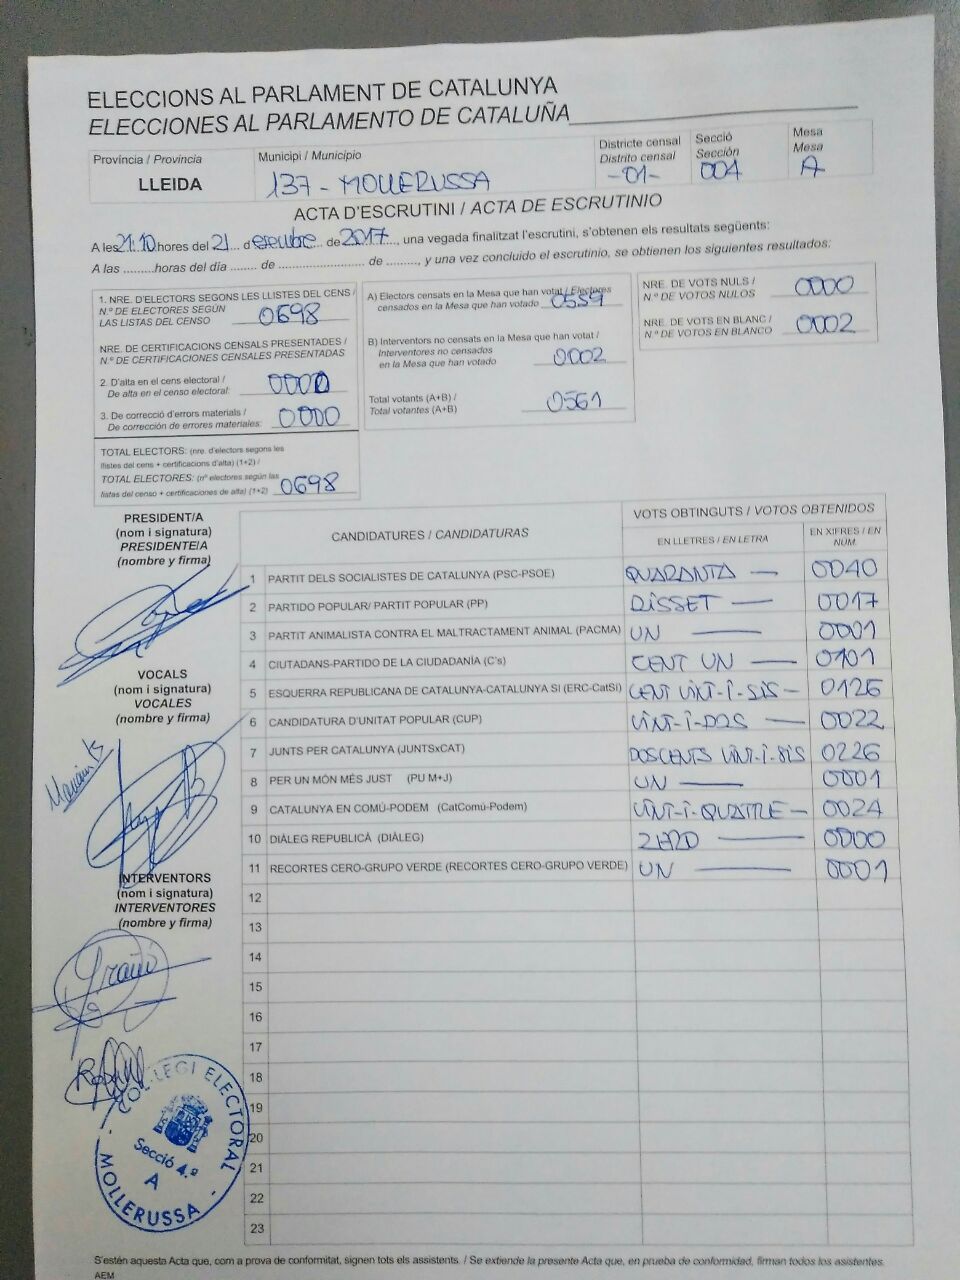 ELECCIONS AL PARLAMENT DE CATALUNYA
ELECCIONES AL PARLAMENTO DE CATALUÑA
Província / Provincia
LLEIDA
Municipi / Municipio
137 - MOLLERUSSA
Districte censal
Distrito censal
-01-
Secció
Sección
004
Mesa
Mesa
A
ACTA D'ESCRUTINI / ACTA DE ESCRUTINIO
A les 21:10 hores del 21 ... de 2017, una vegada finalitzat l'escrutini, s'obtenen els resultats següents:
A las .........horas del día ........ de .......................... de ........., y una vez concluido el escrutinio, se obtienen los siguientes resultados:
1. NRE. D'ELECTORS SEGONS LES LLISTES DEL CENS /
N.º DE ELECTORES SEGÚN
LAS LISTAS DEL CENSO 0698
NRE. DE CERTIFICACIONS CENSALS PRESENTADES /
N.º DE CERTIFICACIONES CENSALES PRESENTADAS
2. D'alta en el cens electoral /
De alta en el censo electoral: 0000
3. De correcció d'errors materials /
De corrección de errores materiales: 0000
TOTAL ELECTORS: (nre. d'electors segons les
llistes del cens + certificacions d'alta) (1+2) /
TOTAL ELECTORES: (nº electores según las
listas del censo + certificaciones de alta) (1+2) 0698
A) Electors censats en la Mesa que han votat / Electores
censados en la Mesa que han votado 0559
B) Interventors no censats en la Mesa que han votat /
Interventores no censados
en la Mesa que han votado 0002
Total votants (A+B) /
Total votantes (A+B) 0561
NRE. DE VOTS NULS /
N.º DE VOTOS NULOS 0000
NRE. DE VOTS EN BLANC /
N.º DE VOTOS EN BLANCO 0002
PRESIDENT/A
(nom i signatura)
PRESIDENTE/A
(nombre y firma)
VOCALS
(nom i signatura)
VOCALES
(nombre y firma)
INTERVENTORS
(nom i signatura)
INTERVENTORES
(nombre y firma)
CANDIDATURES / CANDIDATURAS
VOTS OBTINGUTS / VOTOS OBTENIDOS
EN LLETRES / EN LETRA
EN XIFRES / EN
NÚM.
1 PARTIT DELS SOCIALISTES DE CATALUNYA (PSC-PSOE) QUARANTA — 0040
2 PARTIDO POPULAR/ PARTIT POPULAR (PP) DISSET — 0017
3 PARTIT ANIMALISTA CONTRA EL MALTRACTAMENT ANIMAL (PACMA) UN — 0001
4 CIUTADANS-PARTIDO DE LA CIUDADANÍA (C's) CENT UN — 0101
5 ESQUERRA REPUBLICANA DE CATALUNYA-CATALUNYA SÍ (ERC-CatSí) CENT VINT-I-SIS - 0126
6 CANDIDATURA D'UNITAT POPULAR (CUP) VINT-I-DOS — 0022
7 JUNTS PER CATALUNYA (JUNTSxCAT) DOSCENTS VINT-I-SIS 0226
8 PER UN MÓN MÉS JUST (PU M+J) UN — 0001
9 CATALUNYA EN COMÚ-PODEM (CatComú-Podem) VINT-I-QUATRE - 0024
10 DIÀLEG REPUBLICÀ (DIÀLEG) ZERO — 0000
11 RECORTES CERO-GRUPO VERDE (RECORTES CERO-GRUPO VERDE) UN — 0001
12
13
14
15
16
17
18
19
20
21
22
23
COL·LEGI ELECTORAL
Secció 4.ª
A
- MOLLERUSSA -
S'estén aquesta Acta que, com a prova de conformitat, signen tots els assistents. / Se extiende la presente Acta que, en prueba de conformidad, firman todos los asistentes.
AEM